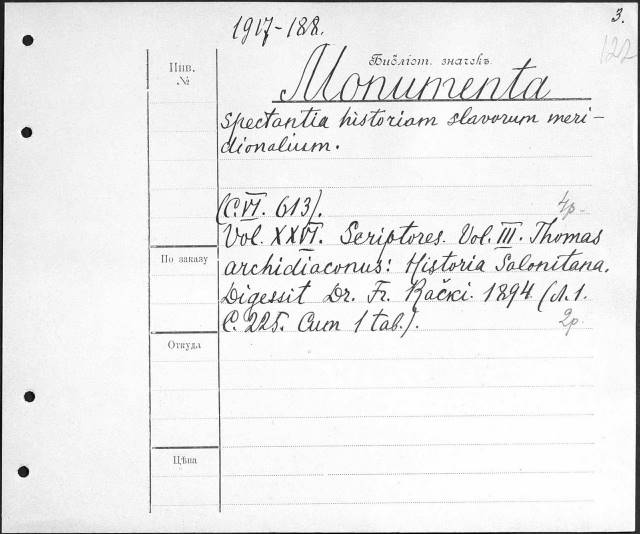 3.
1917-188.
122
Инв.
№
Библіот. значекъ.
Monumenta
spectantia historiam slavorum meri-
dionalium.
(C.VI. 613).
4р.
Vol. XXVI. Scriptores. Vol. III. Thomas
По заказу
archidiaconus: Historia Salonitana.
Digessit Dr. Fr. Rački. 1894 (Л.1.
С. 225. Cum 1 tab.).
2р.
Откуда
Цѣна